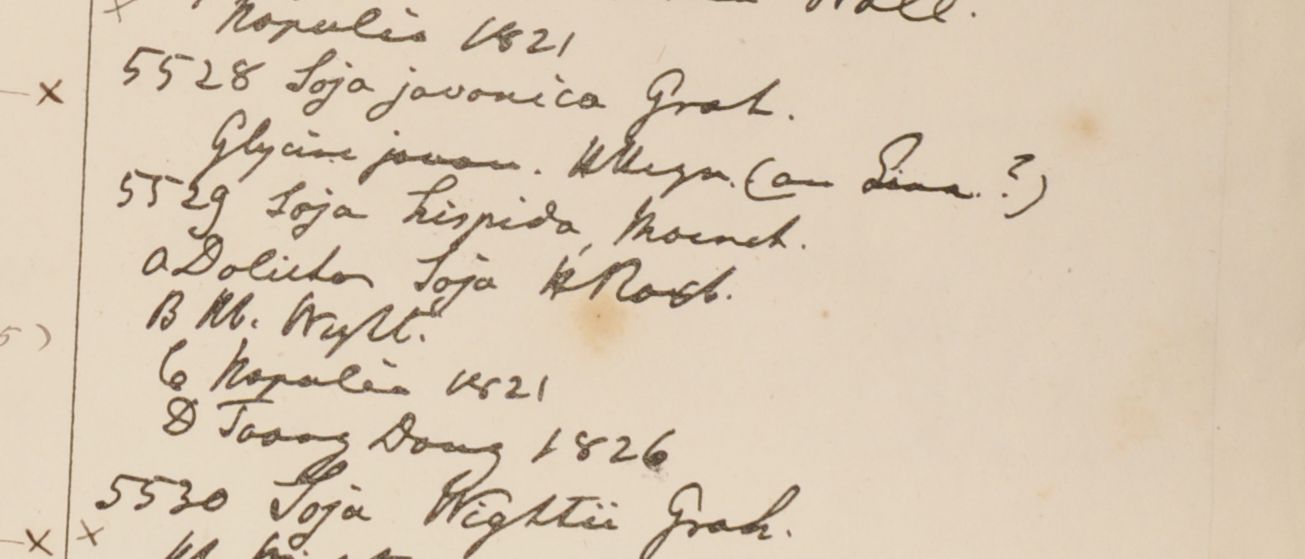 Wall.
Napalia 1821
5528 Soja javanica Grah.
Glycine javan. HHeyn. (an Linn. ?)
5529 Soja hispida, Moench.
a Dolichos Soja HRoxb.
B Hb. Wight.
C Napalia 1821
D Taong Dong 1826
5530 Soja Wightii Grah.